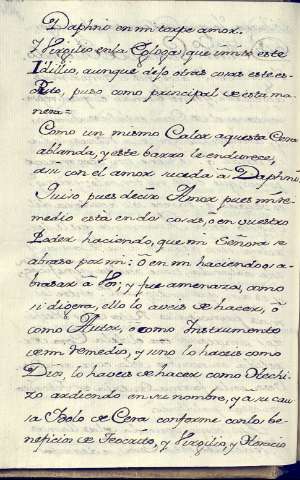 Daphni en mi torpe amor.
Y Virgilio en la Egloga, que imitó este
Idilio, aunque dejó otras cosas este es-
puso como principal de esta ma
nera =
Como un mismo Calor aquesta Cera
ablanda, y este barro le endurece,
asi con el amor suceda â Daphni
Quiso pues decir Amor pues mi re-
medio està en dos cosas, ô en vuestro
Poder haciendo, que mi Señora se
abrase por mi: ô en mi haciendo a-
brasar â Vos; y fue amenaza, como
si digera, ello lo aveis de hacer, ô
como Autor, ô como Instrumento
de mi remedio, y sino lo haceis como
Dios, lo haveis de hacer como Hechi-
zo ardiendo en su nombre, y a su cau
sa Bolo de Cera conforme con los be-
neficios de Teocrito, y Virgilio, y Horacio